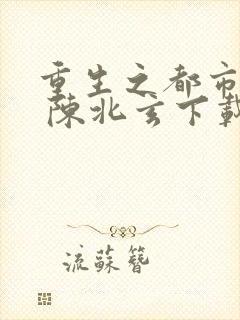 重生之都市
陳北玄下載
流蘇簪